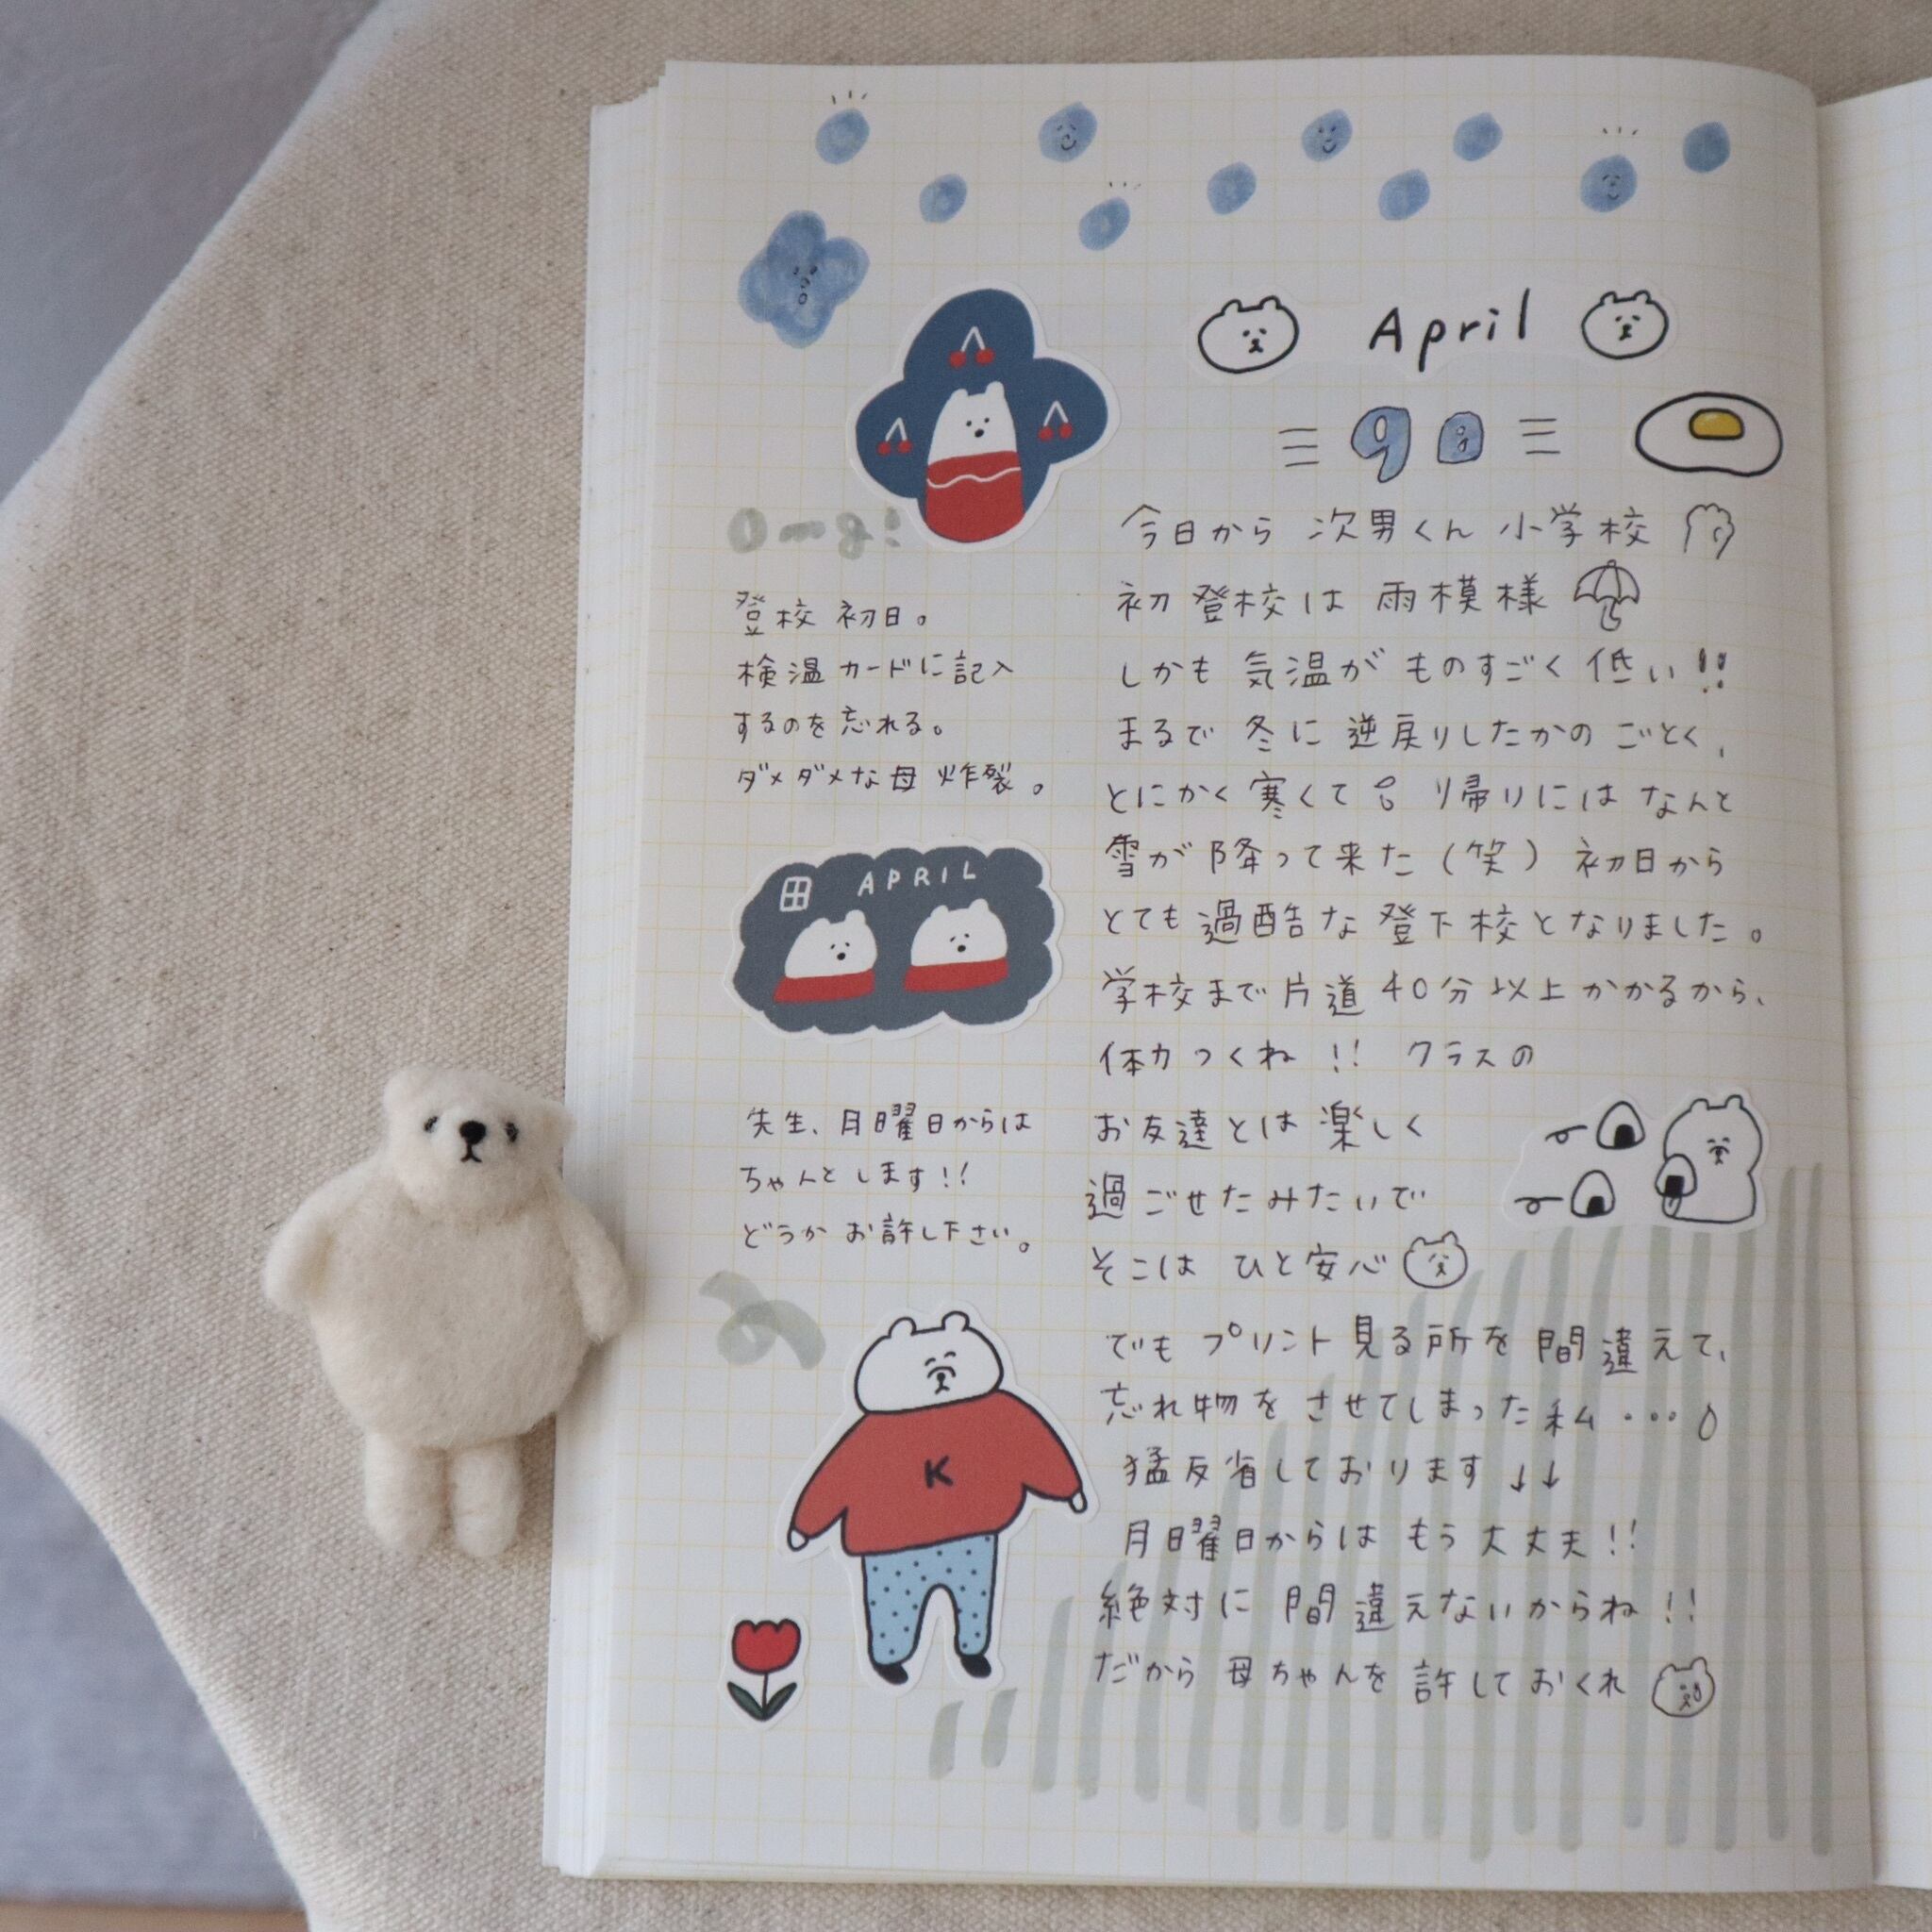 April
9日
今日から 次男くん 小学校
初登校は 雨模様
しかも 気温が ものすごく 低い!!
まるで 冬に 逆戻りしたかの ごとく、
とにかく 寒くて 帰りには なんと
雪が 降って来た (笑) 初日から
とても 過酷な 登下校となりました。
学校まで 片道 40分以上かかるから、
体力つくね!! クラスの
お友達とは 楽しく
過ごせたみたいで
そこは ひと安心
でも プリント見る所を 間違えて、
忘れ物を させてしまった 私・・・
猛反省しております ↓↓
月曜日からは もう 大丈夫!!
絶対に 間違えないからね!!
だから 母ちゃんを 許しておくれ
登校 初日。
検温カードに記入
するのを 忘れる。
ダメダメな母 炸裂。
APRIL
先生、月曜日からは
ちゃんと します!!
どうか お許し下さい。
K